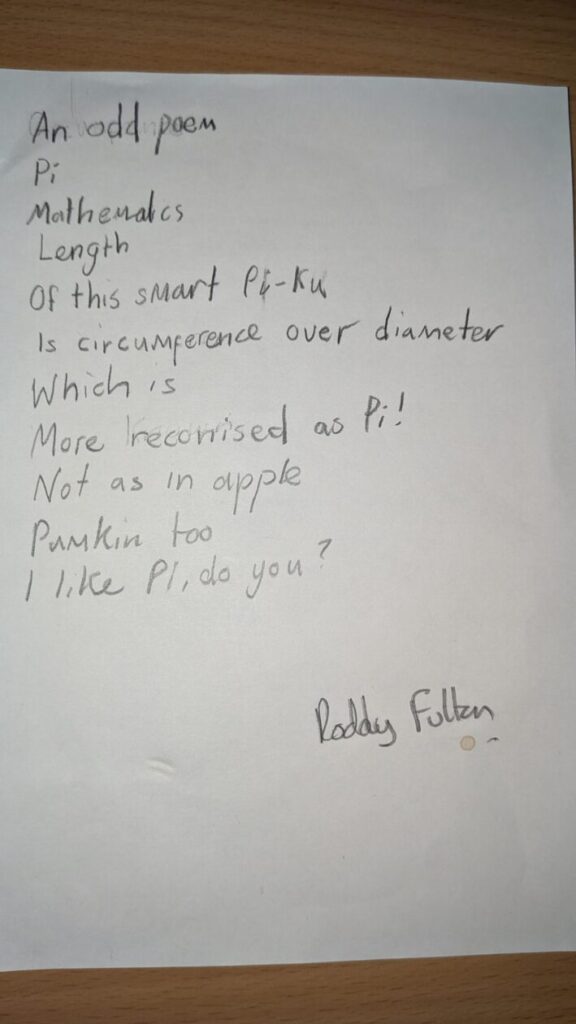 An odd poem
Pi
Mathematics
Length
Of this smart Pi-Ku
Is circumference over diameter
Which is
More recornised as Pi!
Not as in apple
Pumkin too
I like Pi, do you?
Roddy Fulton